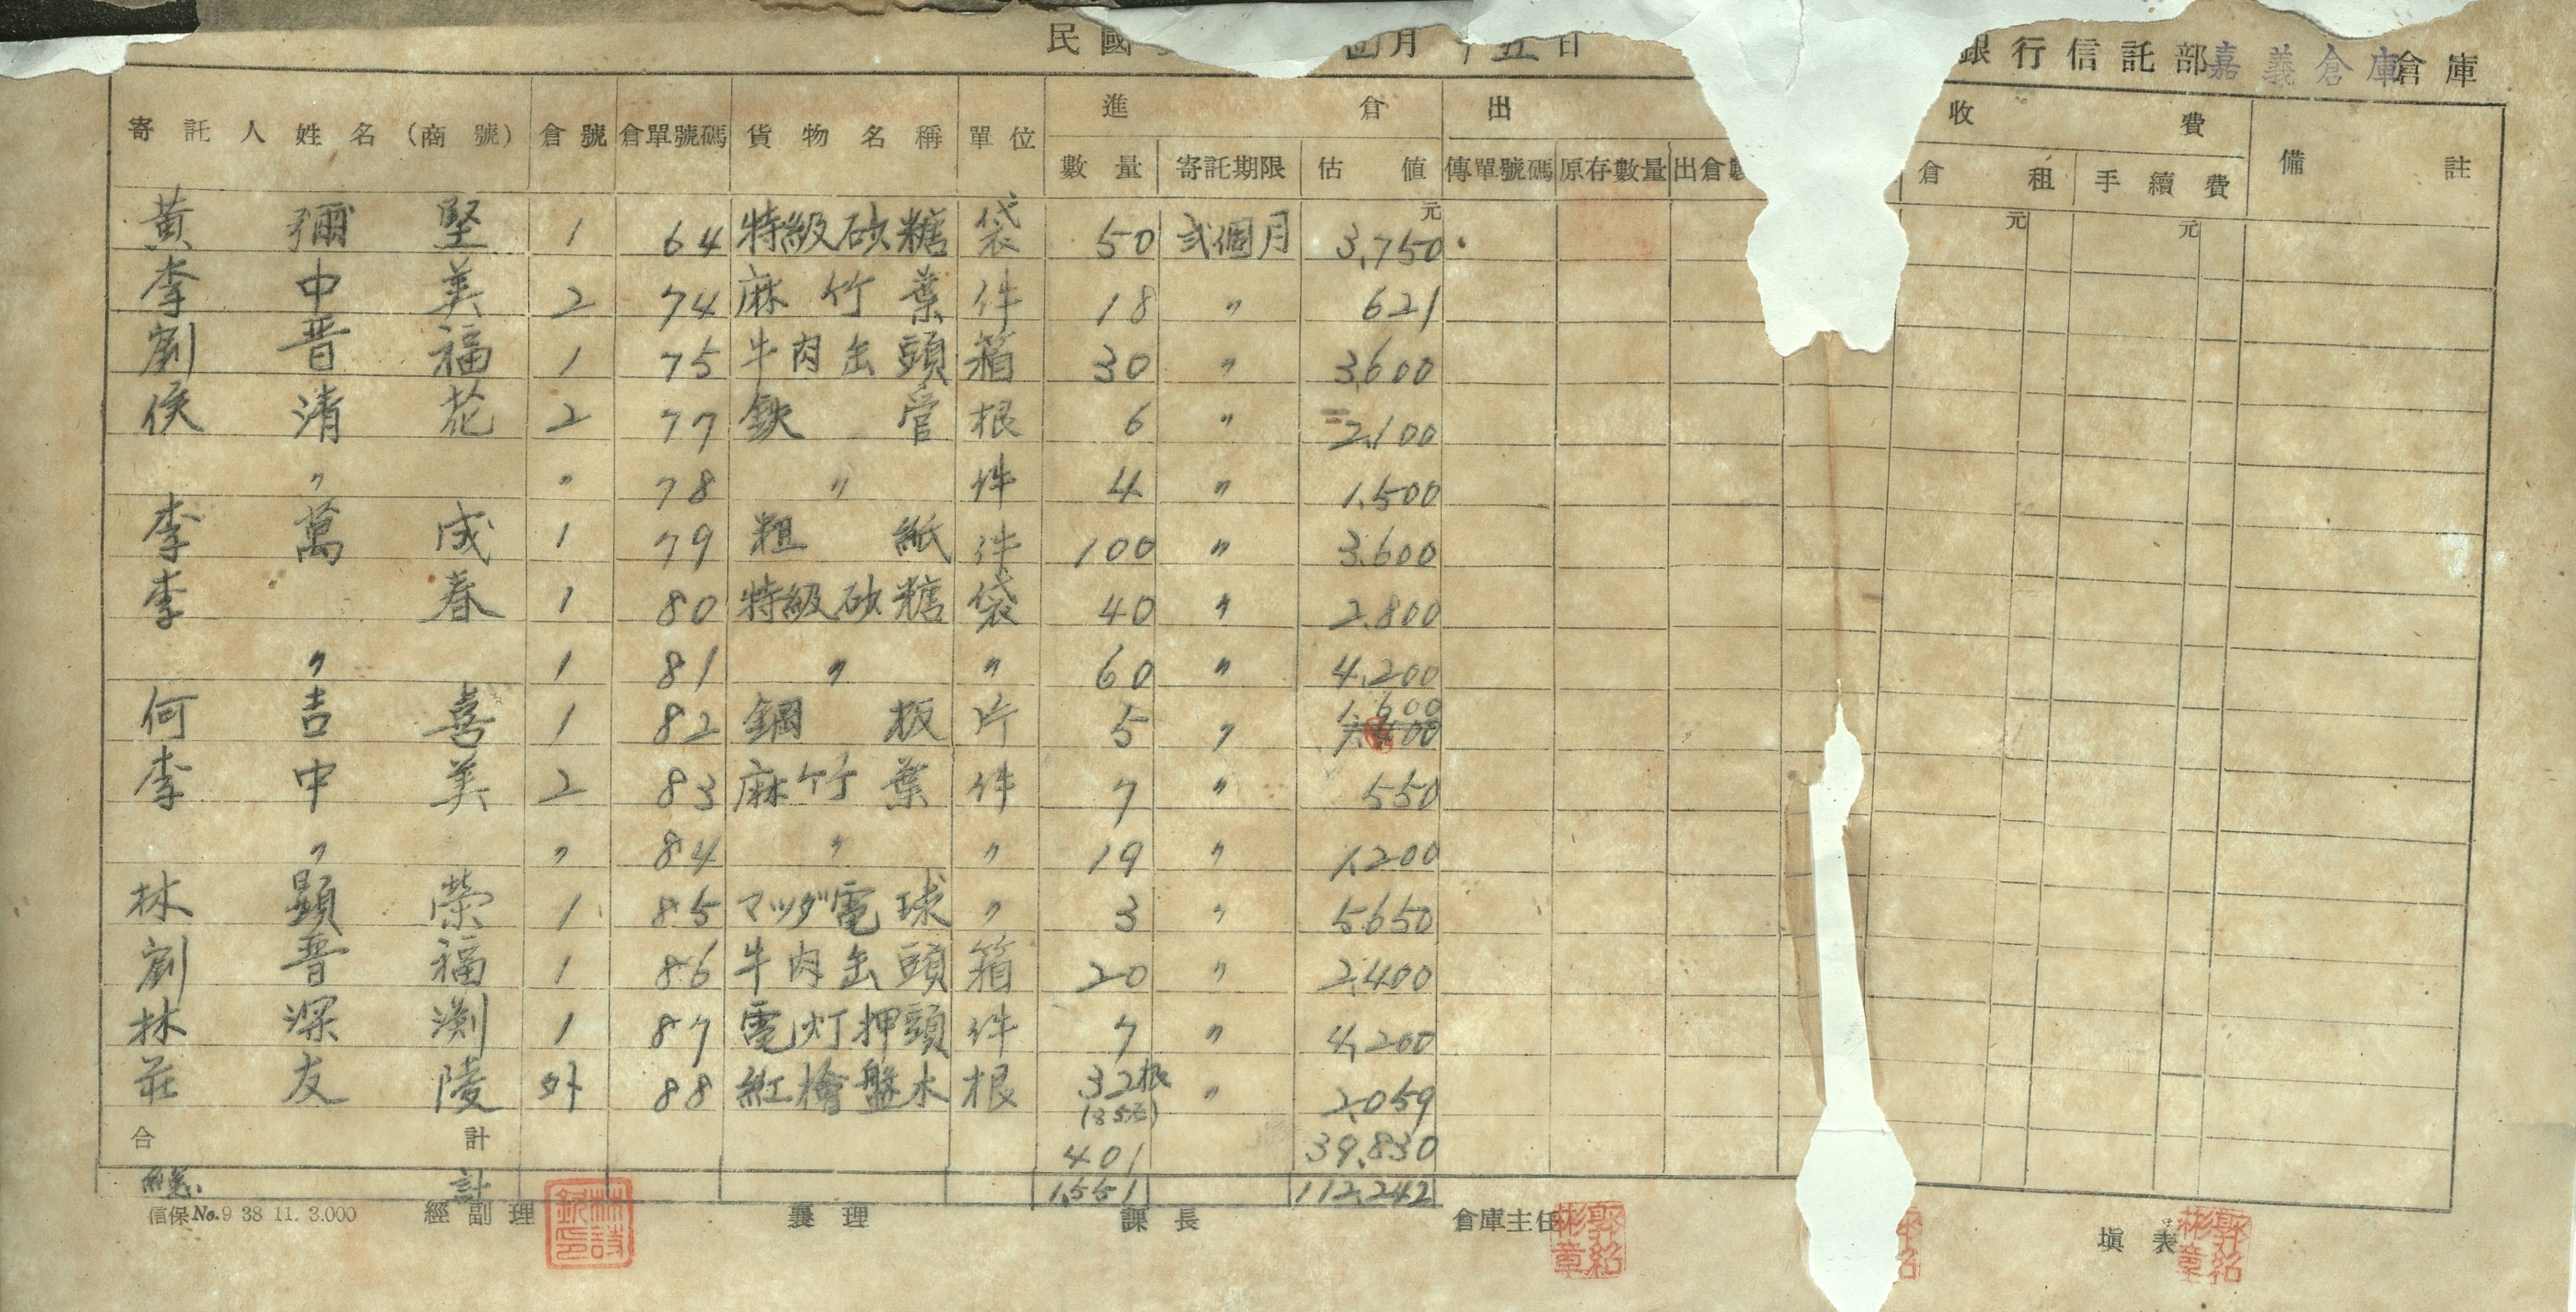 民國 月十五日
銀行信託部嘉義倉庫倉庫
寄託人姓名(商號) 倉號 倉單號碼 貨物名稱 單位 進倉 出 收費 備註
數量 寄託期限 估值 傳單號碼 原存數量 出倉數 倉租 手續費
元 元 元
黃彌堅 1 64 特級砂糖 袋 50 弍個月 3,750.
李中美 2 74 麻竹葉 件 18 〃 621
劉晋福 1 75 牛肉缶頭 箱 30 〃 3,600
侯清花 2 77 鉄管 根 6 〃 2,100
〃 〃 78 〃 件 4 〃 1,500
李萬成 1 79 粗紙 件 100 〃 3,600
李春 1 80 特級砂糖 袋 40 〃 2,800
〃 1 81 〃 〃 60 〃 4,200
何吉喜 1 82 鋼板 片 5 〃 1,600
李中美 2 83 麻竹葉 件 7 〃 550
〃 〃 84 〃 〃 19 〃 1,200
林顕榮 1 85 マツダ電球 〃 3 〃 5,650
劉晋福 1 86 牛肉缶頭 箱 20 〃 2,400
林深渕 1 87 電灯押頭 件 7 〃 4,200
莊友陵 外 88 紅檜盤木 根 32根 〃 2,059
合計 401 39,830
總計 1,551 112,242
信保No.9 38 11. 3.000 經副理 襄理 課長 倉庫主任 填表
林詩欽印 郭紹彬章 郭紹彬章